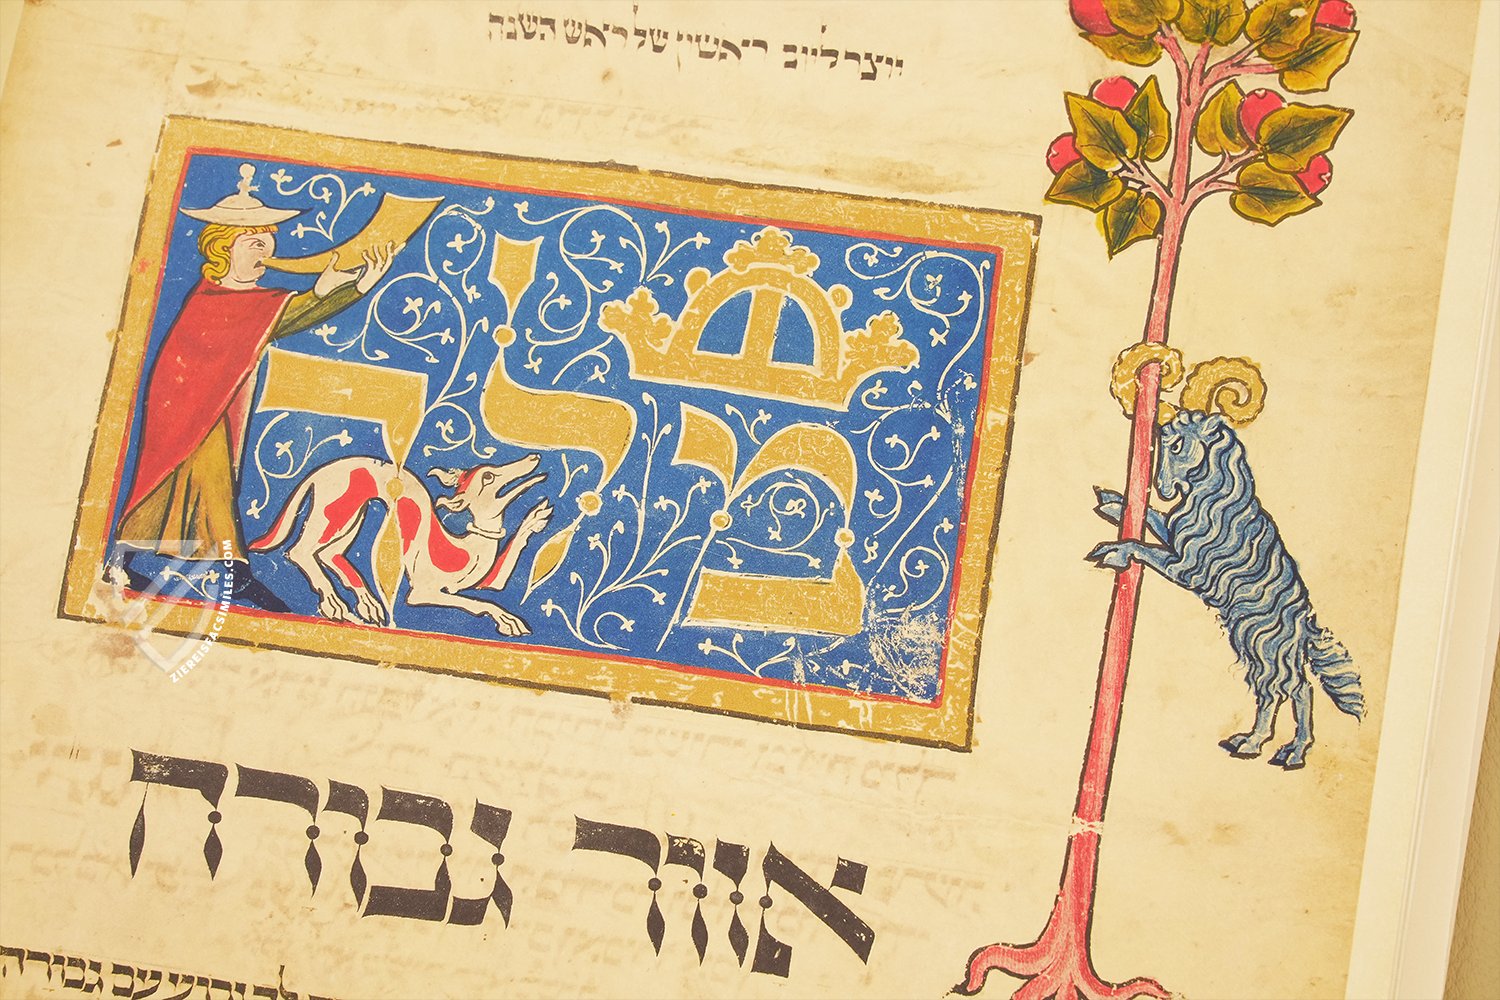 יוצר ליום ראשון של ראש השנה
מלך
אזור גבורה
גבורה
ZIEREISFACSIMILES.COM